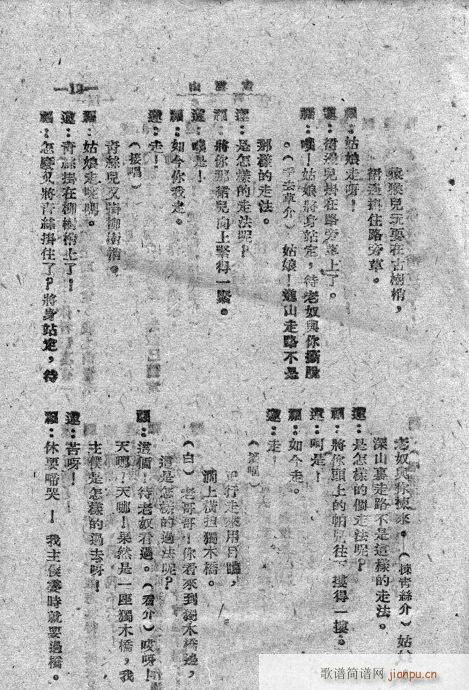 —13—
猿猴兒玩耍在古樹梢，
裙邊掛住路旁草。
福：姑娘走呀！
蓮：裙邊兒掛在路旁草上了。
福：噢！姑娘將身站定，待老奴與你撕脫
。（手去草介）姑娘！這山走路不是
那樣的走法。
蓮：是怎樣的走法呢？
福：將你那裙兒向上緊得一緊。
蓮：噢是！
福：如今你我走。
蓮：走！
（接唱）
青絲兒又掛柳樹梢。
福：姑娘走呀嗎。
蓮：青絲掛在柳樹梢上了！
福：怎麼又將青絲掛住了？將身站定，待
老奴與你撼來。（揀青絲介）姑
深山裏走路不是這樣的走法。
蓮：是怎樣的個走法呢？
福：將你頭上的帕兒往下摟得一摟。
蓮：呵是！
福：如今走。
蓮：走！
（接唱）
正行走來用目瞧，
澗上橫担獨木橋。
（白）老哥哥！你看來到獨木橋邊，
這是怎樣的過法呢？
福：這個！待老奴看過。（看介）哎呀！
天哪！天哪！果然是一座獨木橋，我
主僕是怎樣的過去呀！
蓮：苦呀！
福：休要啼哭！我主僕霎時就要過橋。
歌谱简谱网
jianpu.cn